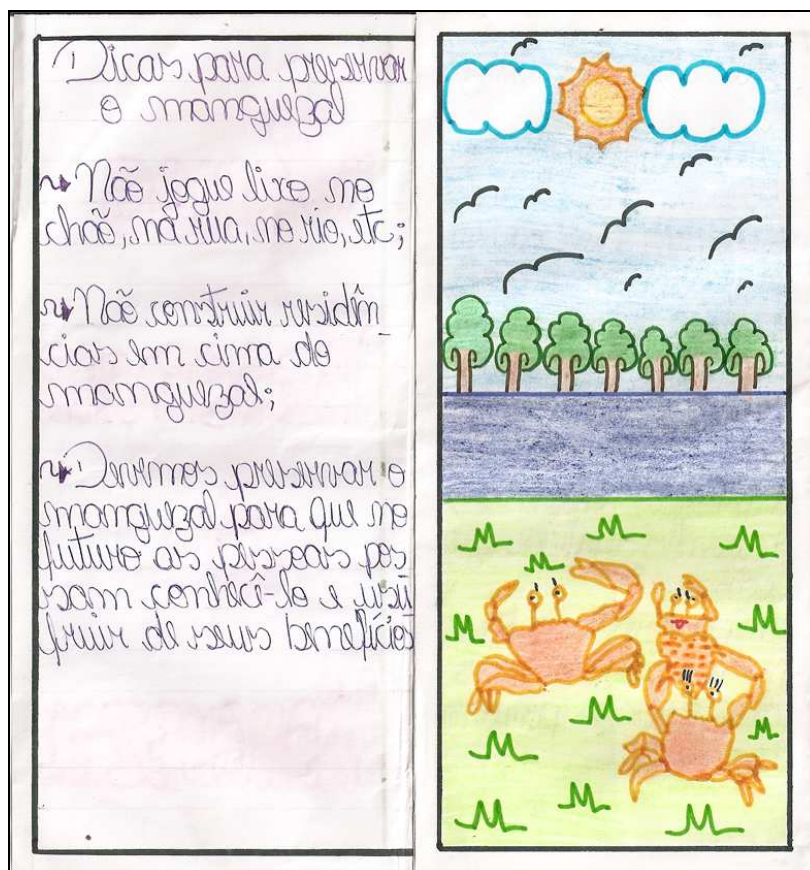 Dicas para preservar
o manguezal
Não jogue lixo no
chão, na rua, no rio, etc;
Não construir residên
cias em cima do
manguezal;
Devemos preservar o
manguezal para que no
futuro as pessoas pos
sam conhecê-lo e usu
fruir de seus benefícios